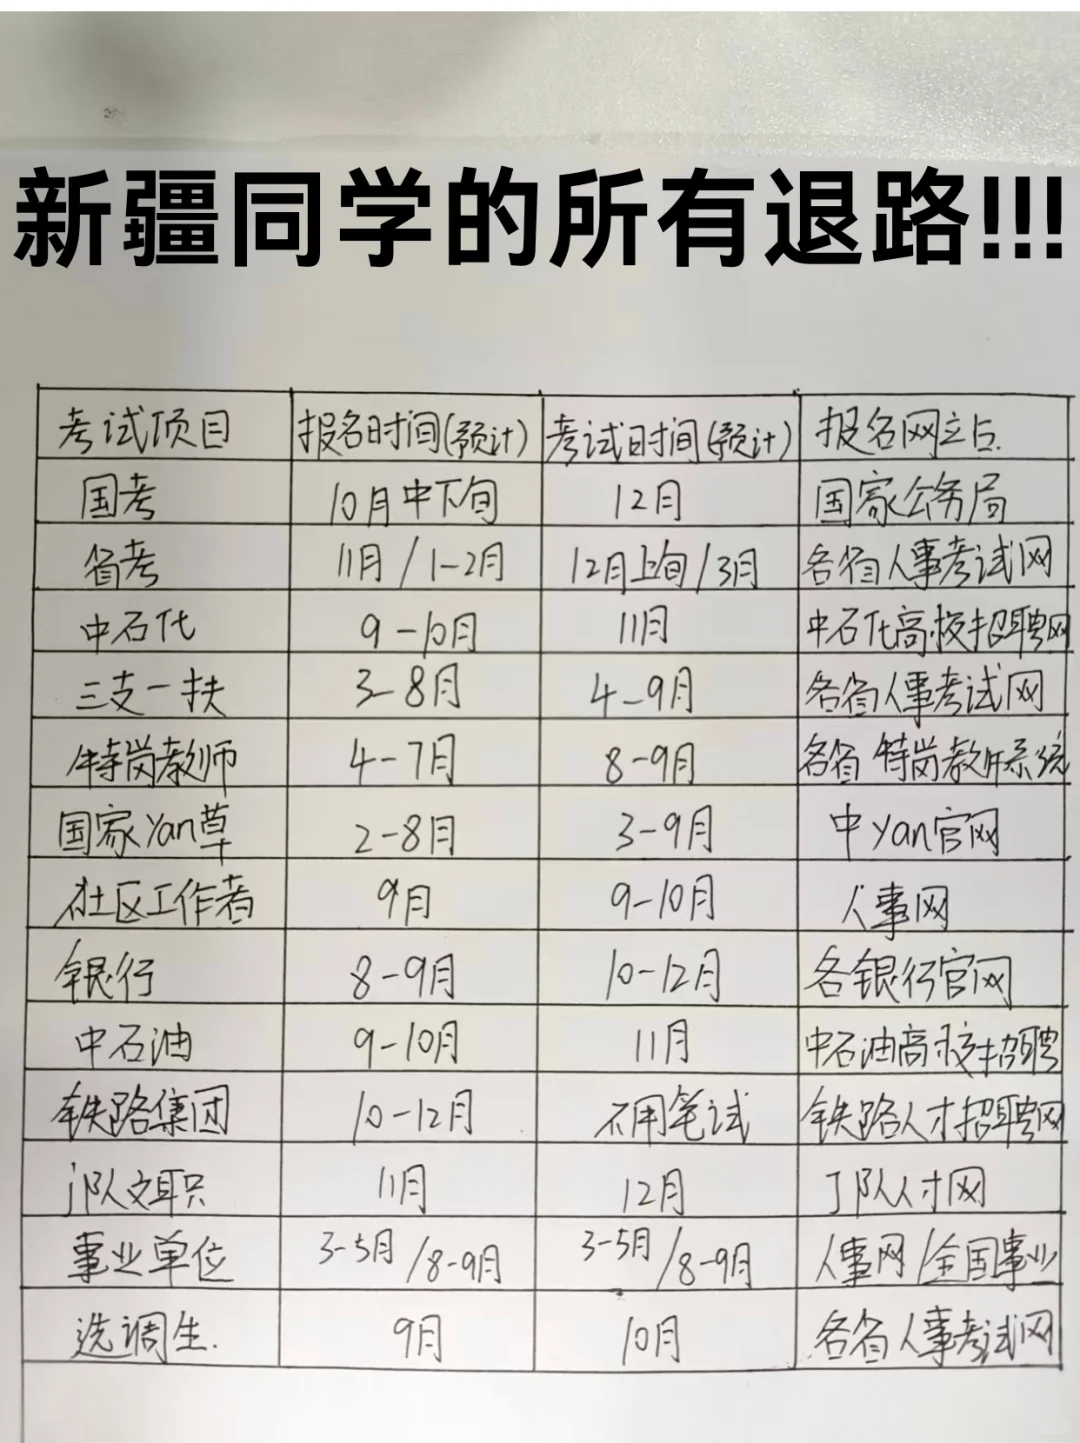 新疆同学的所有退路!!!
考试项目 报名时间(预计) 考试时间(预计) 报名网站.
国考 10月中下旬 12月 国家公务局
省考 11月/1-2月 12月上旬/3月 各省人事考试网
中石化 9-10月 11月 中石化高校招聘网
三支一扶 3-8月 4-9月 各省人事考试网
特岗教师 4-7月 8-9月 各省特岗教师系统
国家yan草 2-8月 3-9月 中yan官网
社区工作者 9月 9-10月 人事网
银行 8-9月 10-12月 各银行官网
中石油 9-10月 11月 中石油高校招聘
铁路集团 10-12月 不用笔试 铁路人才招聘网
j队文职 11月 12月 J队人才网
事业单位 3-5月/8-9月 3-5月/8-9月 人事网/全国事业
选调生. 9月 10月 各省人事考试网